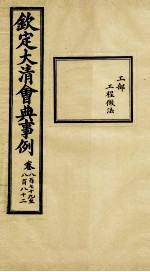 欽定大清會典事例 卷八百七十九至八百八十二
工部
工程做法